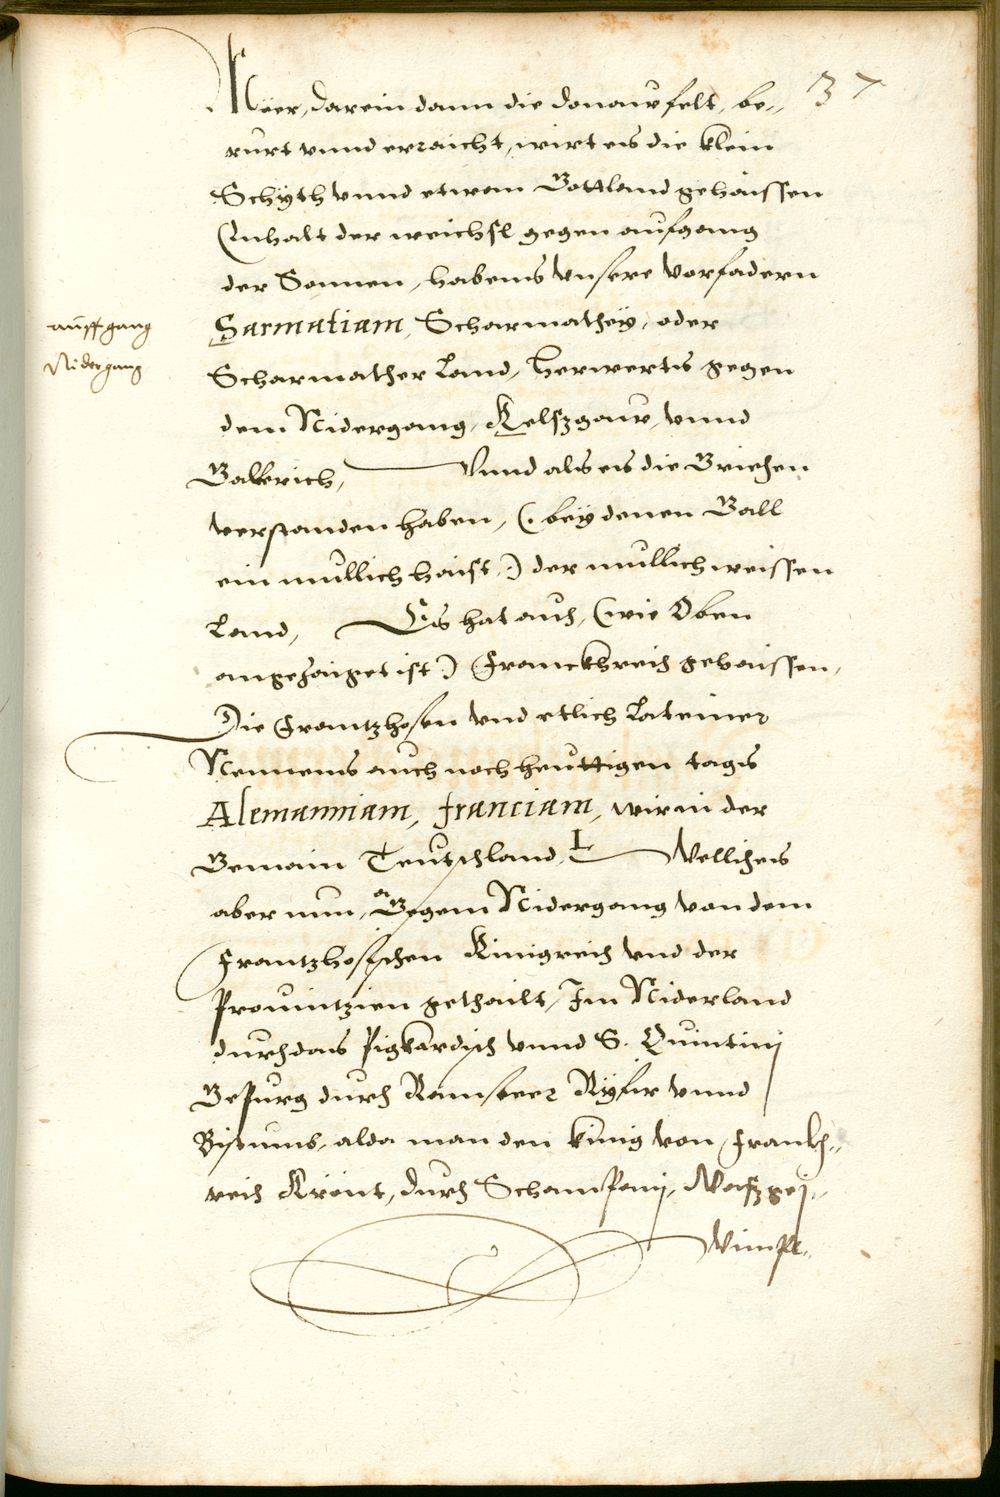 37
Mëer, darein dann die donaw felt, be„
rürt vnnd erraicht, wirt es die klein
Schÿth vnnd etwan Gottland gehaissen
Einhalt der weichsl gegen aufgang
der Sonnen, habens vnsere vorfadern
aufgang
Nidergang
Sarmatiam, Scharmatheÿ, oder
Scharmather Land, herwerts gegen
dem Nidergang, Kelszgaw, vnnd
Galkrich, Vnnd als es die Griechen
verstanden haben, (. beÿ denen Gall
ein mullich haist .) der mullich weissen
Land, Es hat auch, (wie Oben
angezaiget ist .) Franckhreich gehaissen,
Die Frantzhosen vnd etlich Lateiner
Nennens auch noch heuttigen tags
Alemanniam, franciam, wir in der
Gemain Teutschland, Wellches
aber nun, Gegem Nidergang von dem
Frantzhosischen Künigreich vnd der
Prouintzien gethailt, Im Niderland
durch das Pigkardisch vnnd S. Quintinj
Gepurg durch Ramseer Rÿfir vnnd
Bistumb, alda man den künig von Frankh„
reich Krönt, durch Schampanij, Waszgej„
Wimpl„